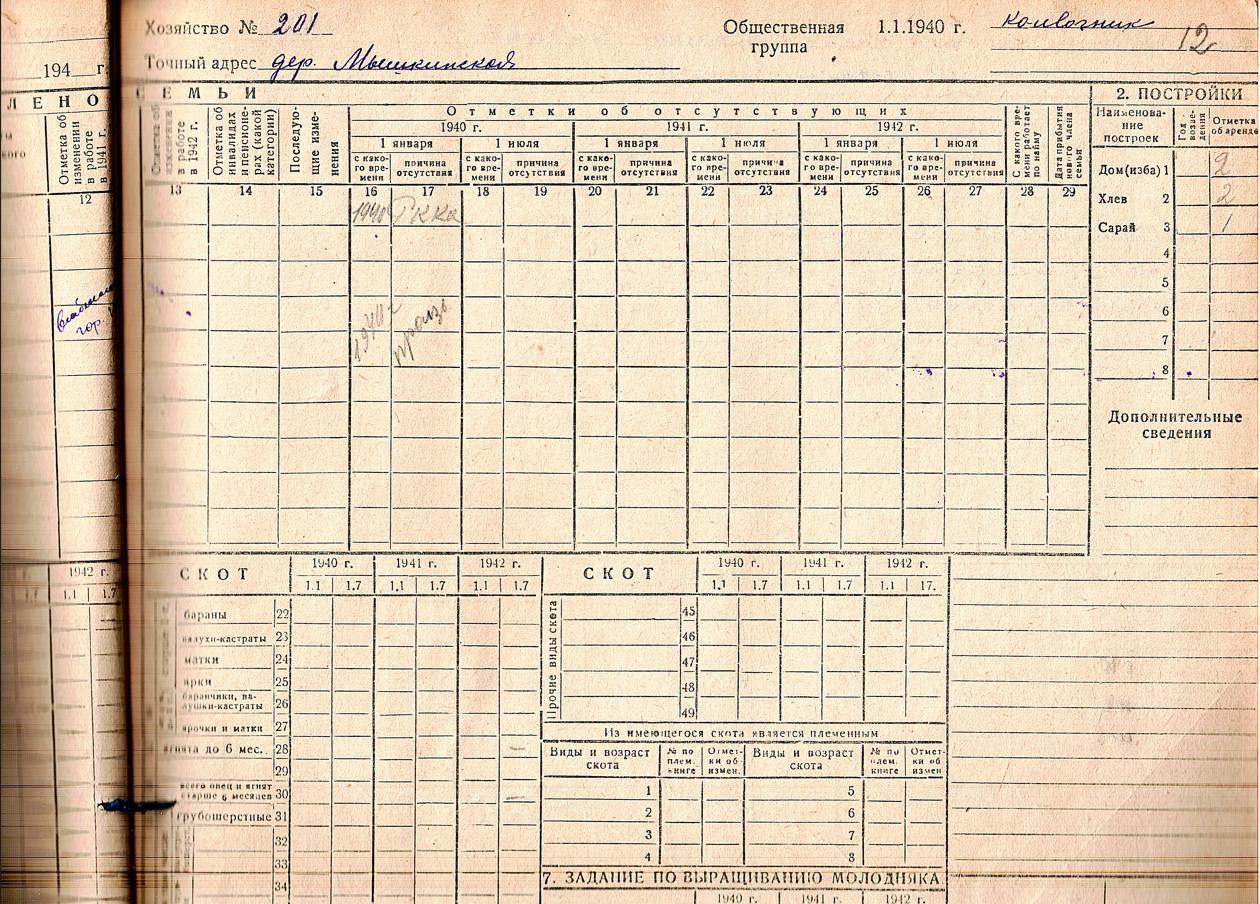 Хозяйство № 201
Общественная группа 1.1.1940 г.
12
Точный адрес дер. Мышкинской
194 г.
ЛЕНО
СЕМЬИ
2. ПОСТРОЙКИ
Отметка об изменении в работе в 1941 г.
в работе в 1942 г.
Отметка об инвалидах и пенсионерах (какой категории)
Последующие изменения
Отметки об отсутствующих
1940 г. 1941 г. 1942 г.
1 января 1 июля 1 января 1 июля 1 января 1 июля
с како-го вре-мени причина отсутствия с како-го вре-мени причина отсутствия с како-го вре-мени причина отсутствия с како-го вре-мени причина отсутствия с како-го вре-мени причина отсутствия с како-го вре-мени причина отсутствия
С какого вре-мени работает по найму
Дата прибытия нового члена семьи
Наименова-ние построек
Год возве-дения
Отметка об аренде
12 13 14 15 16 17 18 19 20 21 22 23 24 25 26 27 28 29
Дом(изба) 1 2
Хлев 2 2
Сарай 3 1
4
5
6
7
8
1940 Ркка
гор.
1940 г
Дополнительные
сведения
1942 г.
1.1 1.7
СКОТ 1940 г. 1941 г. 1942 г.
1.1 1.7 1.1 1.7 1.1 1.7
бараны 22
валухи-кастраты 23
матки 24
ярки 25
баранчики, ва-лушки-кастраты 26
ярочки и матки 27
ягнята до 6 мес. 28
29
всего овец и ягнят старше 6 месяцев 30
грубошерстные 31
32
33
34
СКОТ 1940 г. 1941 г. 1942 г.
1.1 1.7 1.1 1.7 1.1 17.
Прочие виды скота
45
46
47
48
49
Из имеющегося скота является племенным
Виды и возраст скота № по плем. книге Отмет-ки об измен. Виды и возраст скота № по плем. книге Отмет-ки об измен
1 5
2 6
3 7
4 8
7. ЗАДАНИЕ ПО ВЫРАЩИВАНИЮ МОЛОДНЯКА
1940 г. 1941 г. 1942 г.